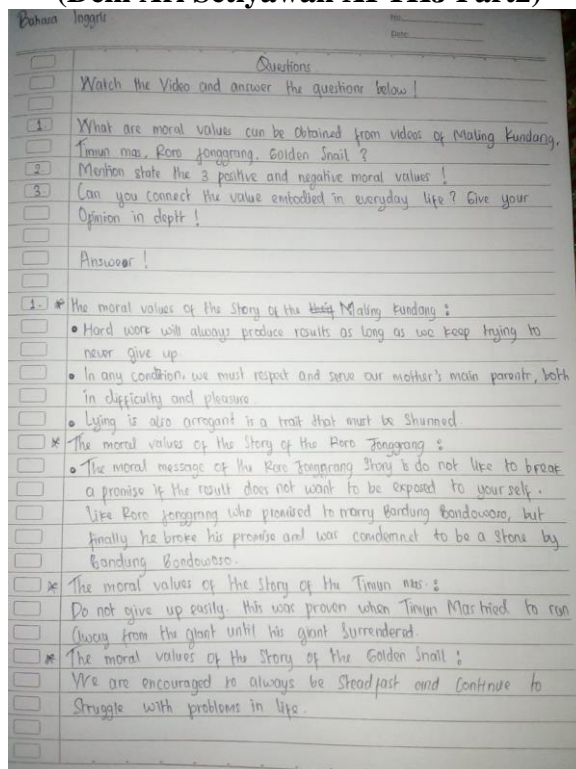 (Deni Ari Setiyawan XI TKJ Part2)
Bahasa Inggris
No.
Date:
Questions
Watch the Video and answer the questions below!
1 What are moral values can be obtained from videos of Maling Kundang,
Timun mas, Roro Jonggrang, Golden Snail ?
2. Mention state the 3 positive and negative moral values !
3 Can you connect the value embodied in everyday life ? Give your
Opinion in depth !
Answeer !
1. * the moral values of the Story of the Maling Kundang :
• Hard work will always produce results as long as we keep trying to
never give up
• In any condition, we must respect and serve our mother's main parentr, both
in difficulty and pleasure.
• Lying is also arrogant is a trait that must be Shunned.
* The moral values of the Story of the Roro Jonggrang :
• The moral message of the Roro Jonggrang Story is do not like to break
a promise if the result does not want to be exposed to your self.
Like Roro Jonggrang who promised to marry Bandung Bondowoso, but
finally he broke his promise and was condemnet to be a stone by
Bandung Bondowoso.
* The moral values of the Story of the Timun mas. :
Do not give up easily. this was proven when Timun Mas tried to run
away from the giant until his giant Surrendered.
* The moral values of the Story of the Golden Snail :
We are encouraged to always be Steadfast and Continue to
Struggle with problems in life.